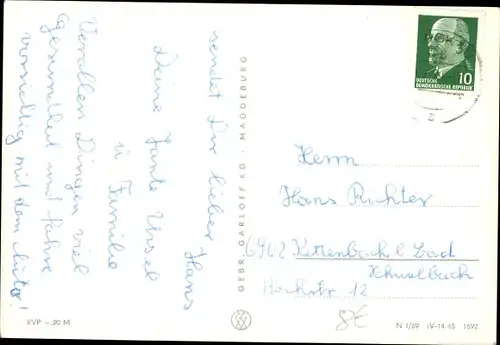 Vor allen Dingen viel
Gesundheit und fahre
vorsichtig mit dem Auto!
sendet Dir lieber Hans
Deine Tante Ursel
u Familie
GEBR. GARLOFF KG. MAGDEBURG
10
DEUTSCHE
DEMOKRATISCHE REPUBLIK
Herrn
Hans Richter
6942 Kettenbach b. Bad
Schwalbach
Hochstr 12
8€
EVP —.20 M
N 1/69 IV-14-45 1692